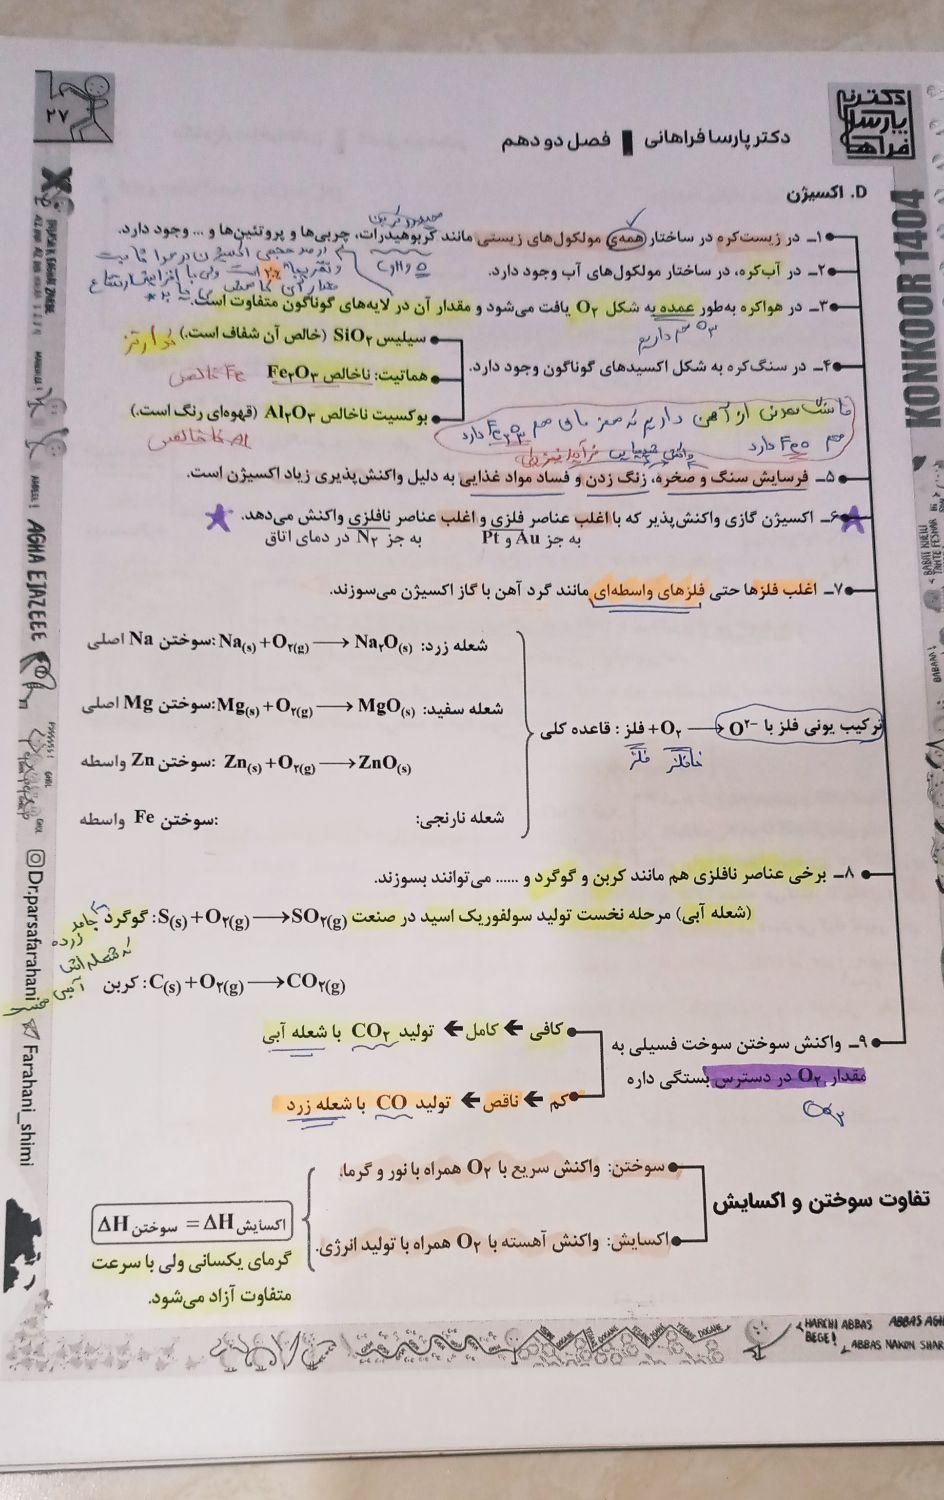 ۲۷
دکتر پارسا فراهانی | فصل دو دهم
دکترنه
پارسا
فراها
D. اکسیژن
محدود کربن
۱ـ در زیست‌کره در ساختار همه‌ی مولکول‌های زیستی مانند کربوهیدرات، چربی‌ها و پروتئین‌ها و ... وجود دارد.
۲ـ در آب‌کره، در ساختار مولکول‌های آب وجود دارد.
۳ـ در هواکره به‌طور عمده به شکل O₂ یافت می‌شود و مقدار آن در لایه‌های گوناگون متفاوت است.
O₃ هم داریم
۴ـ در سنگ‌کره به شکل اکسیدهای گوناگون وجود دارد.
سیلیس SiO₂ (خالص آن شفاف است.)
هماتیت: ناخالص Fe₂O₃ Fe خالص
بوکسیت ناخالص Al₂O₃ (قهوه‌ای رنگ است.)
هم FeO دارد
۵ـ فرسایش سنگ و صخره، زنگ زدن و فساد مواد غذایی به دلیل واکنش‌پذیری زیاد اکسیژن است.
۶ـ اکسیژن گازی واکنش‌پذیر که با اغلب عناصر فلزی و اغلب عناصر نافلزی واکنش می‌دهد.
به جز Au و Pt به جز N₂ در دمای اتاق
۷ـ اغلب فلزها حتی فلزهای واسطه‌ای مانند گرد آهن با گاز اکسیژن می‌سوزند.
ترکیب یونی فلز با O²⁻ ⟶ O₂ + فلز : قاعده کلی
نافلز فلز
شعله زرد: Na(s) + O₂(g) ⟶ Na₂O(s) :سوختن Na اصلی
شعله سفید: Mg(s) + O₂(g) ⟶ MgO(s) :سوختن Mg اصلی
Zn(s) + O₂(g) ⟶ ZnO(s) :سوختن Zn واسطه
شعله نارنجی: :سوختن Fe واسطه
۸ـ برخی عناصر نافلزی هم مانند کربن و گوگرد و ...... می‌توانند بسوزند.
(شعله آبی) مرحله نخست تولید سولفوریک اسید در صنعت S(s) + O₂(g) ⟶ SO₂(g) : گوگرد
جامد زرده
که شعله‌اش
آبی
C(s) + O₂(g) ⟶ CO₂(g) : کربن
۹ـ واکنش سوختن سوخت فسیلی به
مقدار O₂ در دسترس بستگی داره
کافی ← کامل ← تولید CO₂ با شعله آبی
کم ← ناقص ← تولید CO با شعله زرد
تفاوت سوختن و اکسایش
سوختن: واکنش سریع با O₂ همراه با نور و گرما.
اکسایش: واکنش آهسته با O₂ همراه با تولید انرژی.
ΔH سوختن = ΔH اکسایش
گرمای یکسانی ولی با سرعت
متفاوت آزاد می‌شود.
KONKOOR 1404
AGHA EJAZEEE
Dr.parsafarahani
Farahani_shimi
HARCHI ABBAS
BEGE!
ABBAS AGH
ABBAS NAKON SHAR